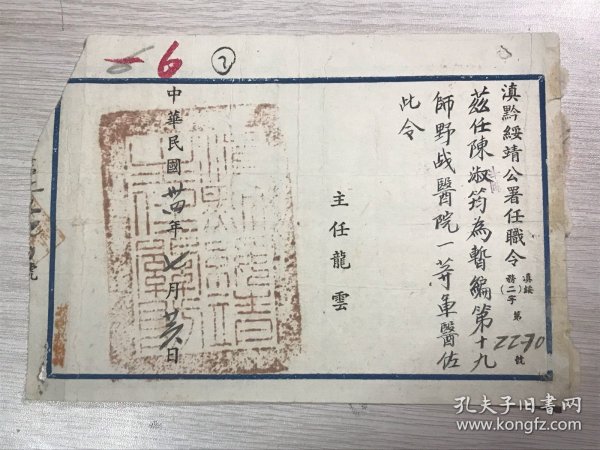 滇黔綏靖公署任職令
滇綏
務二字 第2270號
茲任陳淑筠為暫編第十九
師野战醫院一等軍醫佐
此令
主任龍雲
中華民國卅四年七月廿六日
6 6 2
孔夫子旧书网
www.kongfz.com